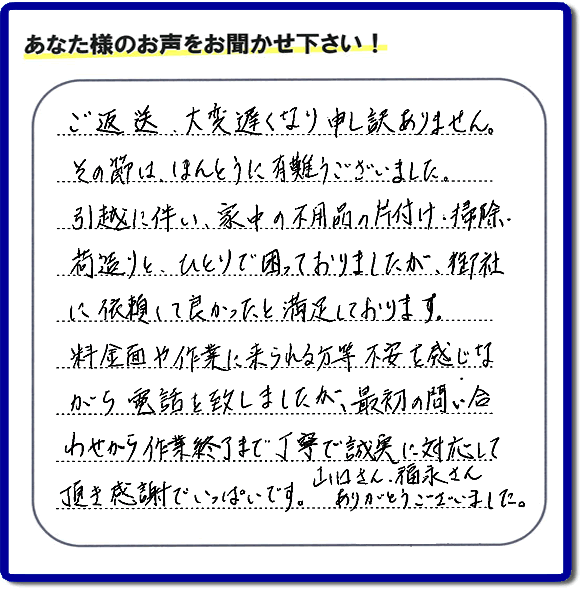 あなた様のお声をお聞かせ下さい！
ご返送、大変遅くなり申し訳ありません。
その節は、ほんとうに有難うございました。
引越に伴い、家中の不用品の片付け・掃除、
荷造りと、ひとりで困っておりましたが、御社
に依頼して良かったと満足しております。
料金面や作業に来られる方等不安を感じな
がら電話を致しましたが、最初の問い合
わせから作業終了まで丁寧で誠実に対応して
頂き感謝でいっぱいです。山口さん、福永さん
ありがとうございました。